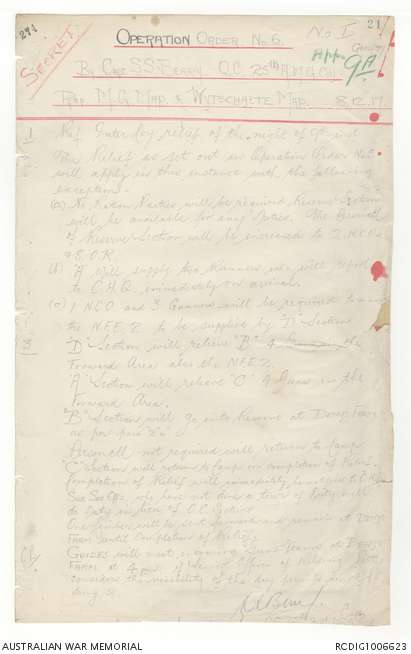 274
21
SECRET.
OPERATION ORDER No 6.
No I
App 9A
By Capt S.S. BERRY O.C. 25th A.M.G. Coy
Ref M.G. MAP & WYTSCHAETE MAP. 8.12.17
1 Ref Inter Coy relief of the night of 9th inst
The Relief as set out in Operation Order No 5
will apply in this instance with the following
exceptions-
(a) No Ration Parties will be required Reserve Section
will be available for any duties. The strength
of Reserve Section will be increased to 2 NCOs
& 8 O.R
(b) "A" will supply two Runners who will report
to C.H.Q. immediately on arrival.
(c) 1 NCO and 3 Gunners will be required to
the N.F.E.Z. to be supplied by "D" Section
3 "D" Section will relieve "B" 4 the
Forward Area also the N.F.E.Z.
"A" Section will relieve "C" 4 Guns in the
Forward Area.
"B" Section will go into Reserve at
as per para
Personell not required will return to Camp
"C" Section will return to Camp on completion of Relief.
Completion of Relief will immediately be
Sub Sec Offs. who have not done a tour of duty will
do duty in lieu of O.C. Section
One limber will be sent forward and remain at
FARM until Completion of Relief.
GUIDES will meet incoming Gun Teams at
FARM at 4 pm. if Senior Officer of Relieving
considers the visibility of the day
doing so
Capt
AUSTRALIAN WAR MEMORIAL
RCDIG1006623